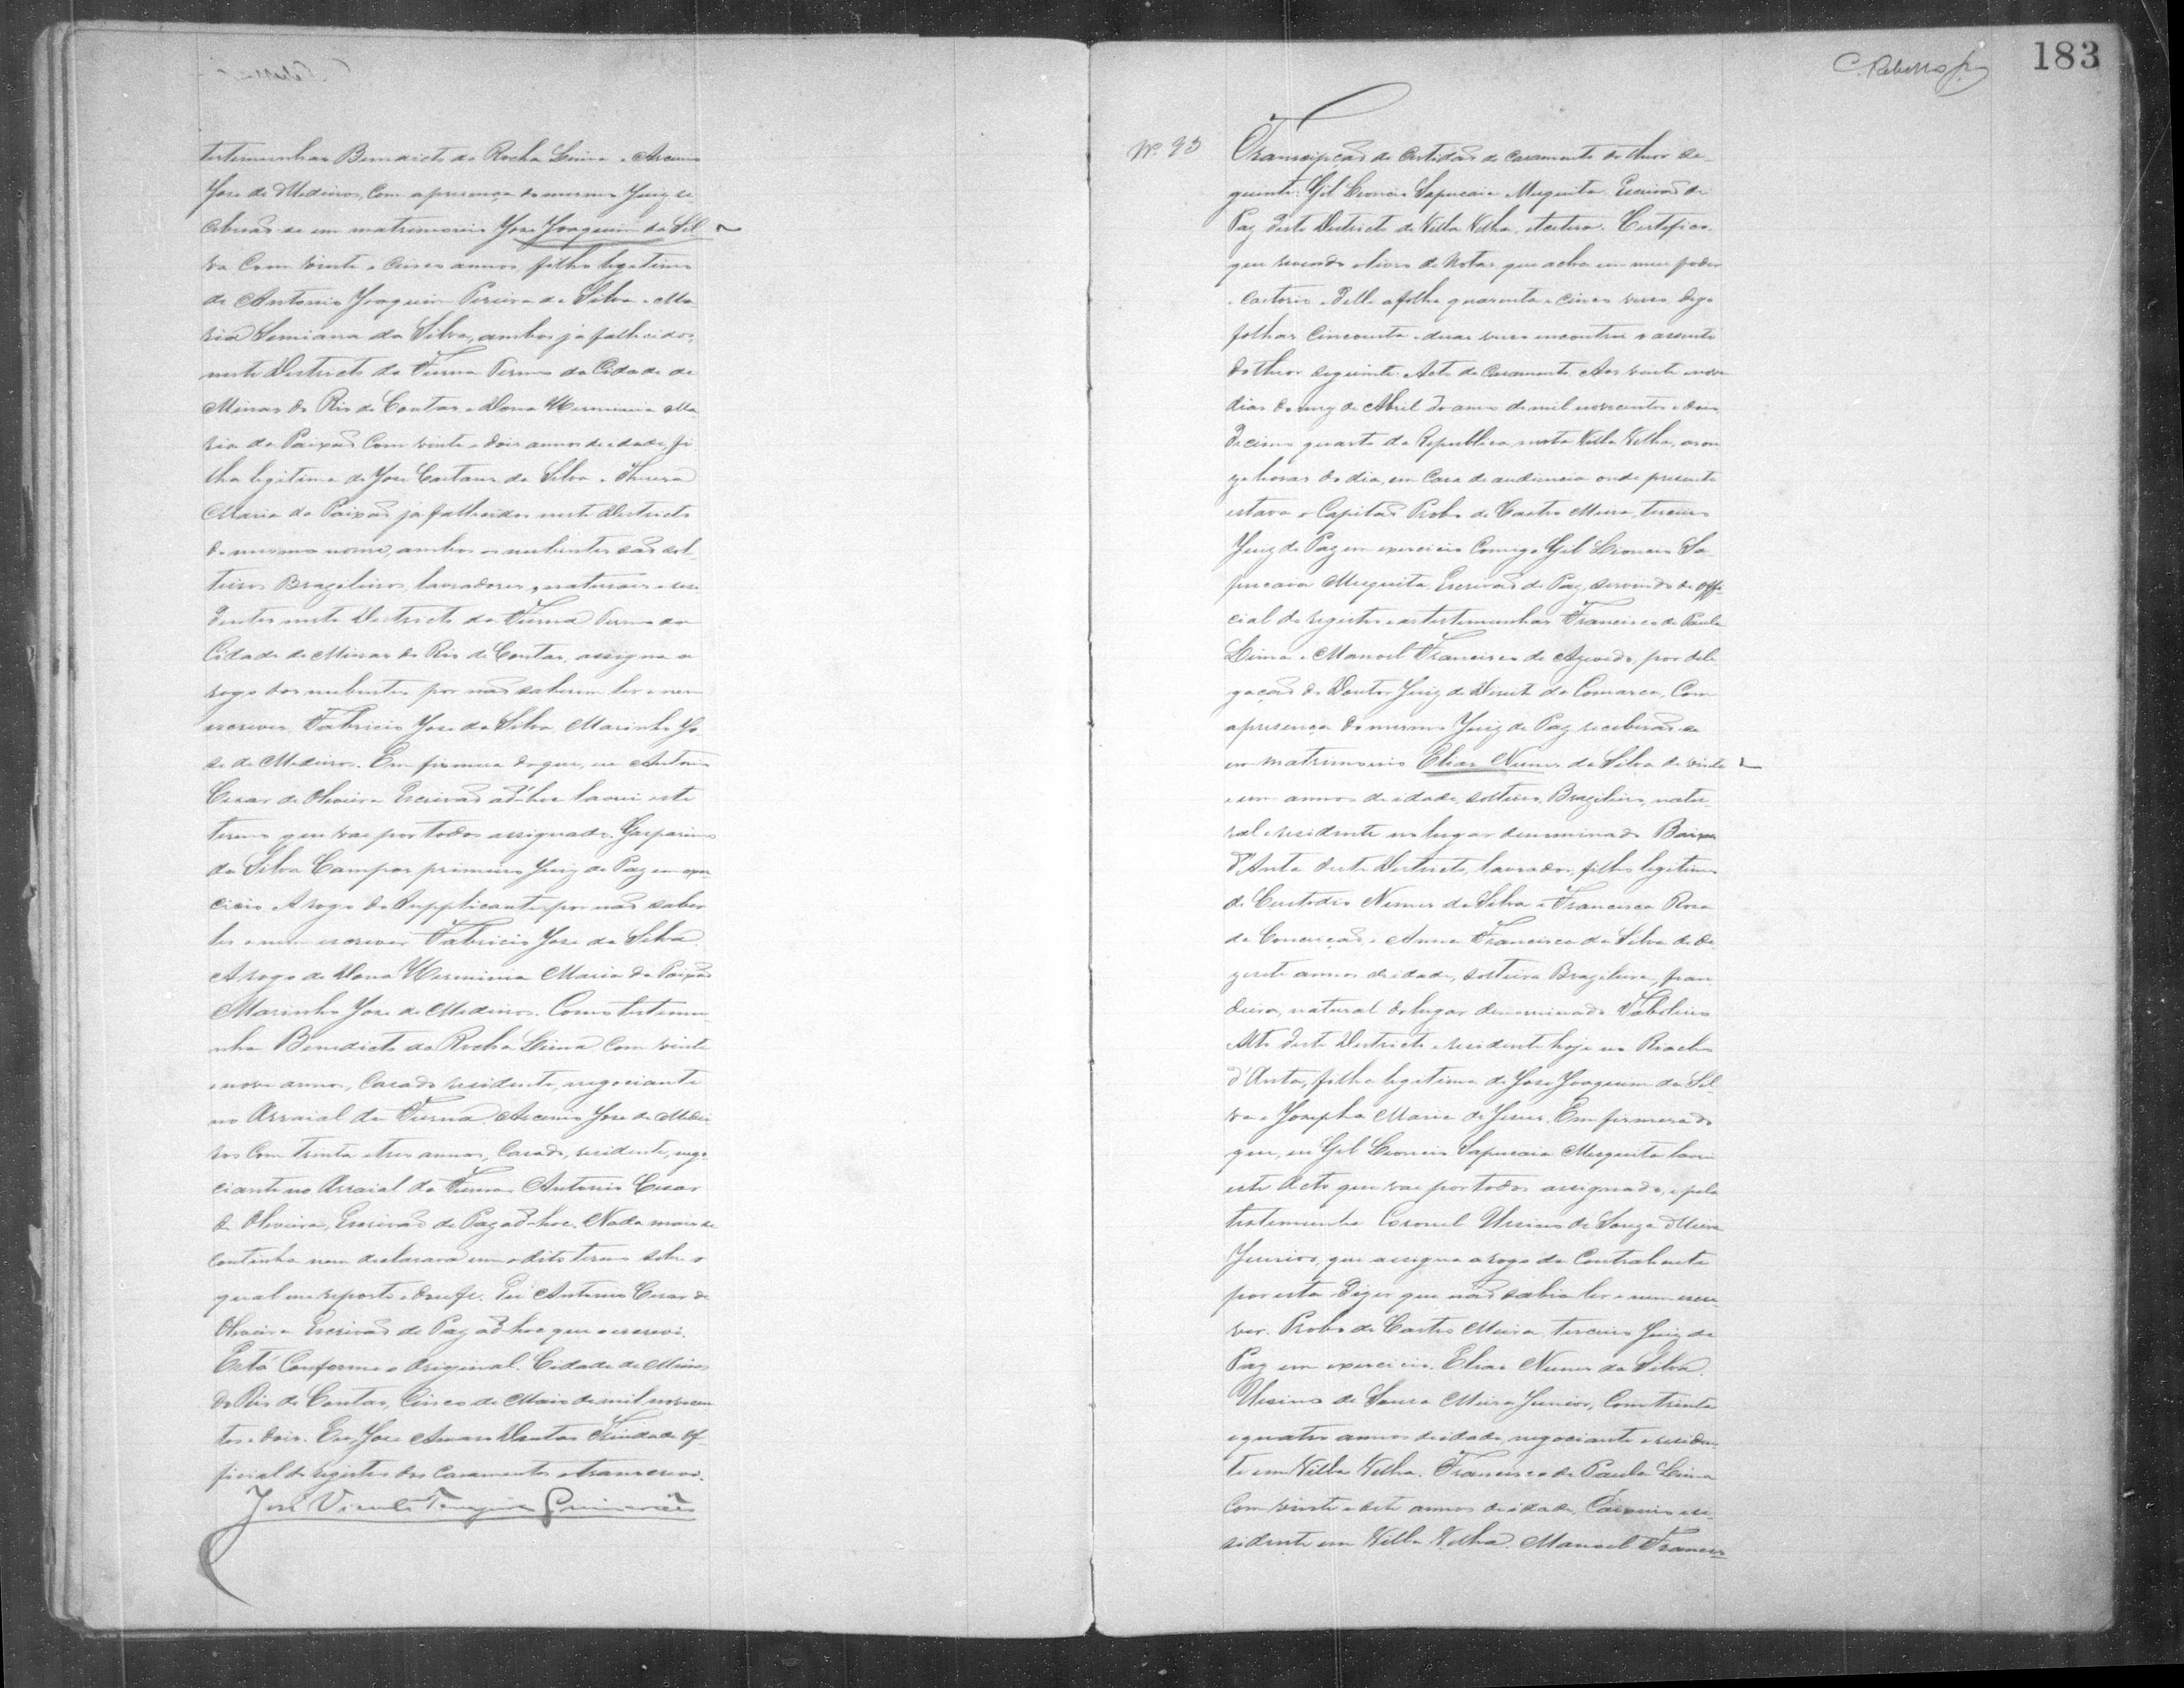 testemunhas Benedicto da Rocha Lima e Arcenio
Jose de Medeiros, Com apresença do mesmo Juiz re
ceberaõ se em matrimonio Jose Joaquim da Sil
va Com vinte e cinco annos, filho legitimo
de Antonio Joaquim Pereira da Silva e Ma
ria Semiana da Silva, ambos ja falhecidos,
neste Destricto da Furna Termo da Cidade de
Minas do Rio de Contas e Dona Herminia Ma
ria da Paixaõ Com vinte e dois annos de edade, fi
lha legitima de Jose Caetano da Silva e Thereza
Maria da Paixaõ ja falhecidos neste Destricto
do mesmo nome, ambos os nubentes saõ sol
teiros Brazileiros, lavradores, naturais e resi
dentes neste Destricto da Furna Termo da
Cidade de Minas do Rio de Contas, assigna a
rogo dos nubentes por naõ saberem ler e nem
escrever, Fabricio Jose da Silva, Marinho Jo
se de Medeiros. Em firmeza do que, eu Antonio
Cesar de Oliveira Escrivaõ ad-hoc lavrei este
termo que vae por todos assignado. Gasparino
da Silva Campos primeiro Juiz de Paz em exer
cicio. A rogo do Supplicante por naõ saber
ler e nem escrever Fabricio Jose da Silva.
A rogo de Dona Herminia Maria da Paixaõ
Marinho Jose de Medeiros. Como testemu
nha Benedicto da Rocha Lima, Com vinte
e nove annos, Casado residente, negociante
no Arraial da Furna. Arcenio Jose de Medei
ros Com trinta e tres annos, Casado, residente, nego
ciante no Arraial da Furna. Antonio Cesar
de Oliveira, Escrivaõ de Paz ad-hoc. Nada mais se
continha nem declarava em o dito termo sobre o
qual me reporto e dou fe. Eu Antonio Cesar de
Oliveira Escrivaõ de Paz ad-hoc que o escrevi.
Está Conforme o Original. Cidade de Minas
do Rio de Contas, Cinco de Maio de mil novecen
tos e dois. Eu, Jose Amaro Dantas Trindade Of
ficial do registro dos Casamentos o transcrevi.
José Vicente Tanajura Guimarães
C. Rebessa Jr.
183
Nº 93
Transcripçaõ da Certidaõ de casamento do theor se
guinte: Gil Leoncio Sapucaia Mesquita Escrivaõ de
Paz deste Destricto de Villa Velha, etcetera. Certifico
que revendo o livro de Notas que acha em meu poder
e Cartorio e delle a folha quarenta e cinco verso, digo
folhas Cincoenta e duas verso encontrei o assento
do theor seguinte. Acto de Casamento. Aos vinte e nove
dias do mez de Abril do anno de mil novecentos e dois
decimo quarto da Republica, nesta Villa Velha, as on
ze horas do dia, em Casa de audiencia onde presente
estava o Capitaõ Probo de Castro Meira, terceiro
Juiz de Paz em exercicio Comigo Gil Leoncio Sa
pucaia Mesquita, Escrivaõ de Paz, servindo de Offi
cial do registro e as testemunhas Francisco de Paula
Lima e Manoel Francisco de Azevedo, por dele
gaçaõ do Doutor Juiz de Direito da Comarca, Com
apresença do mesmo Juiz de Paz, receberaõ-se
em matrimonio Elias Nunes da Silva de vinte
e um annos de idade, solteiro, Brazileiro, natu
ral e residente no lugar denominado Baixa
d'Anta deste Destricto, lavrador, filho legitimo
de Custodio Nunes da Silva e Francisca Rosa
da Conceiçaõ, e Anna Francisca da Silva de de
zesete annos de idade, solteira Brazileira, fian
deira, natural do lugar denominado Taboleiro
Alto deste Destricto e residente hoje no Riacho
d'Anta, filha legitima de Jose Joaquim da Sil
va e Josepha Maria de Jesus. Em firmeza do
que, eu Gil Leoncio Sapucaia Mesquita lavrei
este Acto que vae por todos assignado, e pela
testemunha Coronel Ursino de Souza Meira
Junior, que assigna a rogo da Contrahente
por esta dizer que naõ sabia ler e nem escre
ver. Probo de Castro Meira, terceiro Juiz de
Paz em exercicio. Elias Nunes da Silva.
Ursino de Sousa Meira Junior, Com trinta
e quatro annos de idade, negociante e residen
te em Villa Velha. Francisco de Paula Lima
Com vinte e sete annos de idade, Caixeiro e re
sidente em Villa Velha. Manoel Francis